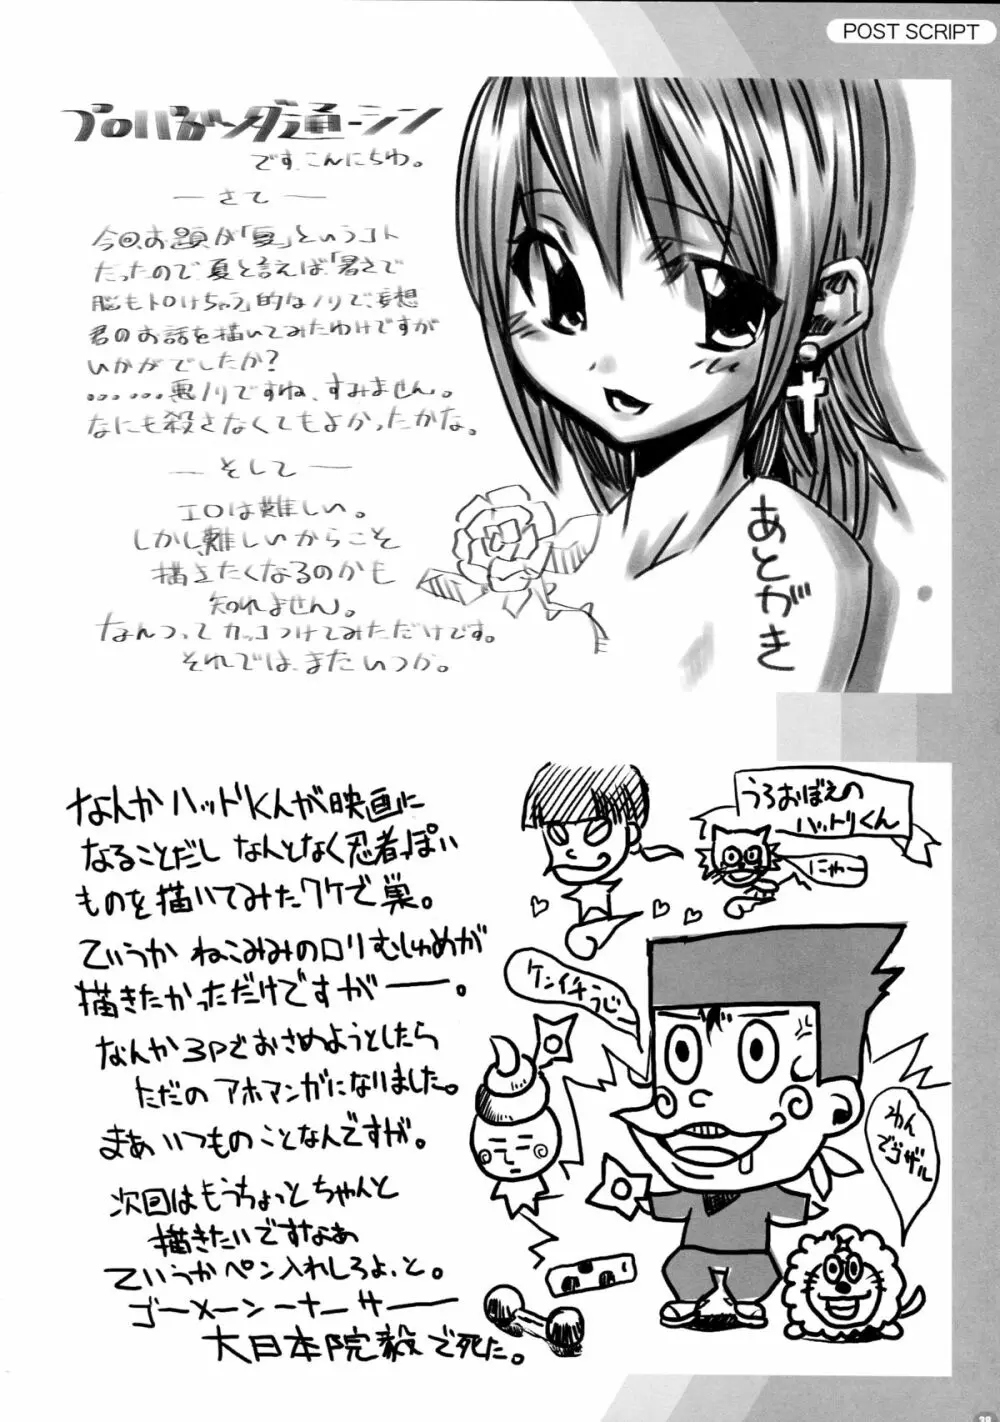 POST SCRIPT
プロパガンダ通ーシン
です、こんにちわ。
― さて ―
今回、お題が「夏」というコト
だったので、夏と言えば、「暑さで
脳もトロけちゃう」的なノリで、妄想
君のお話を描いてみたわけですが
いかがでしたか?
……悪ノリですね、すみません。
なにも殺さなくてもよかったかな。
― そして ―
エロは難しい。
しかし、難しいからこそ
描きたくなるのかも
知れません。
なんつってカッコつけてみただけです。
それでは、またいつか。
あとがき
なんかハットリくんが映画に
なることだし なんとなく忍者っぽい
ものを描いてみたワケで巣。
ていうか ねこみみのロリむしゅめが
描きたかっただけですがー。
なんか3Pでおさめようとしたら
ただのアホマンガになりました。
まあいつものことなんですが。
次回はもうちょっとちゃんと
描きたいですなあ
ていうかペン入れしろよ、と。
ゴーメーンーナーサー
大日本院毅で死た。
うろおぼえの
ハットリくん
にゃー
ケンイチうじー
わん
でゴザル